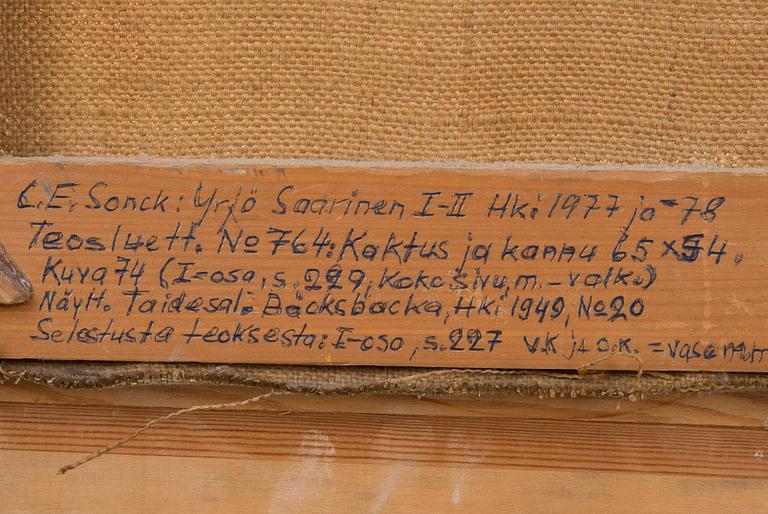 C.E. Sonck: Yrjö Saarinen I-II Hki 1977 ja -78
Teosluett. No 764: Kaktus ja kannu 65 x 54.
Kuva 74 (I-osa, s. 229, koko sivu, m.-valk.)
Näytt. Taidesal. Bäcksbacka, Hki 1949, No 20
Selostusta teoksesta: I-osa, s. 227 v.k ja o.k. =